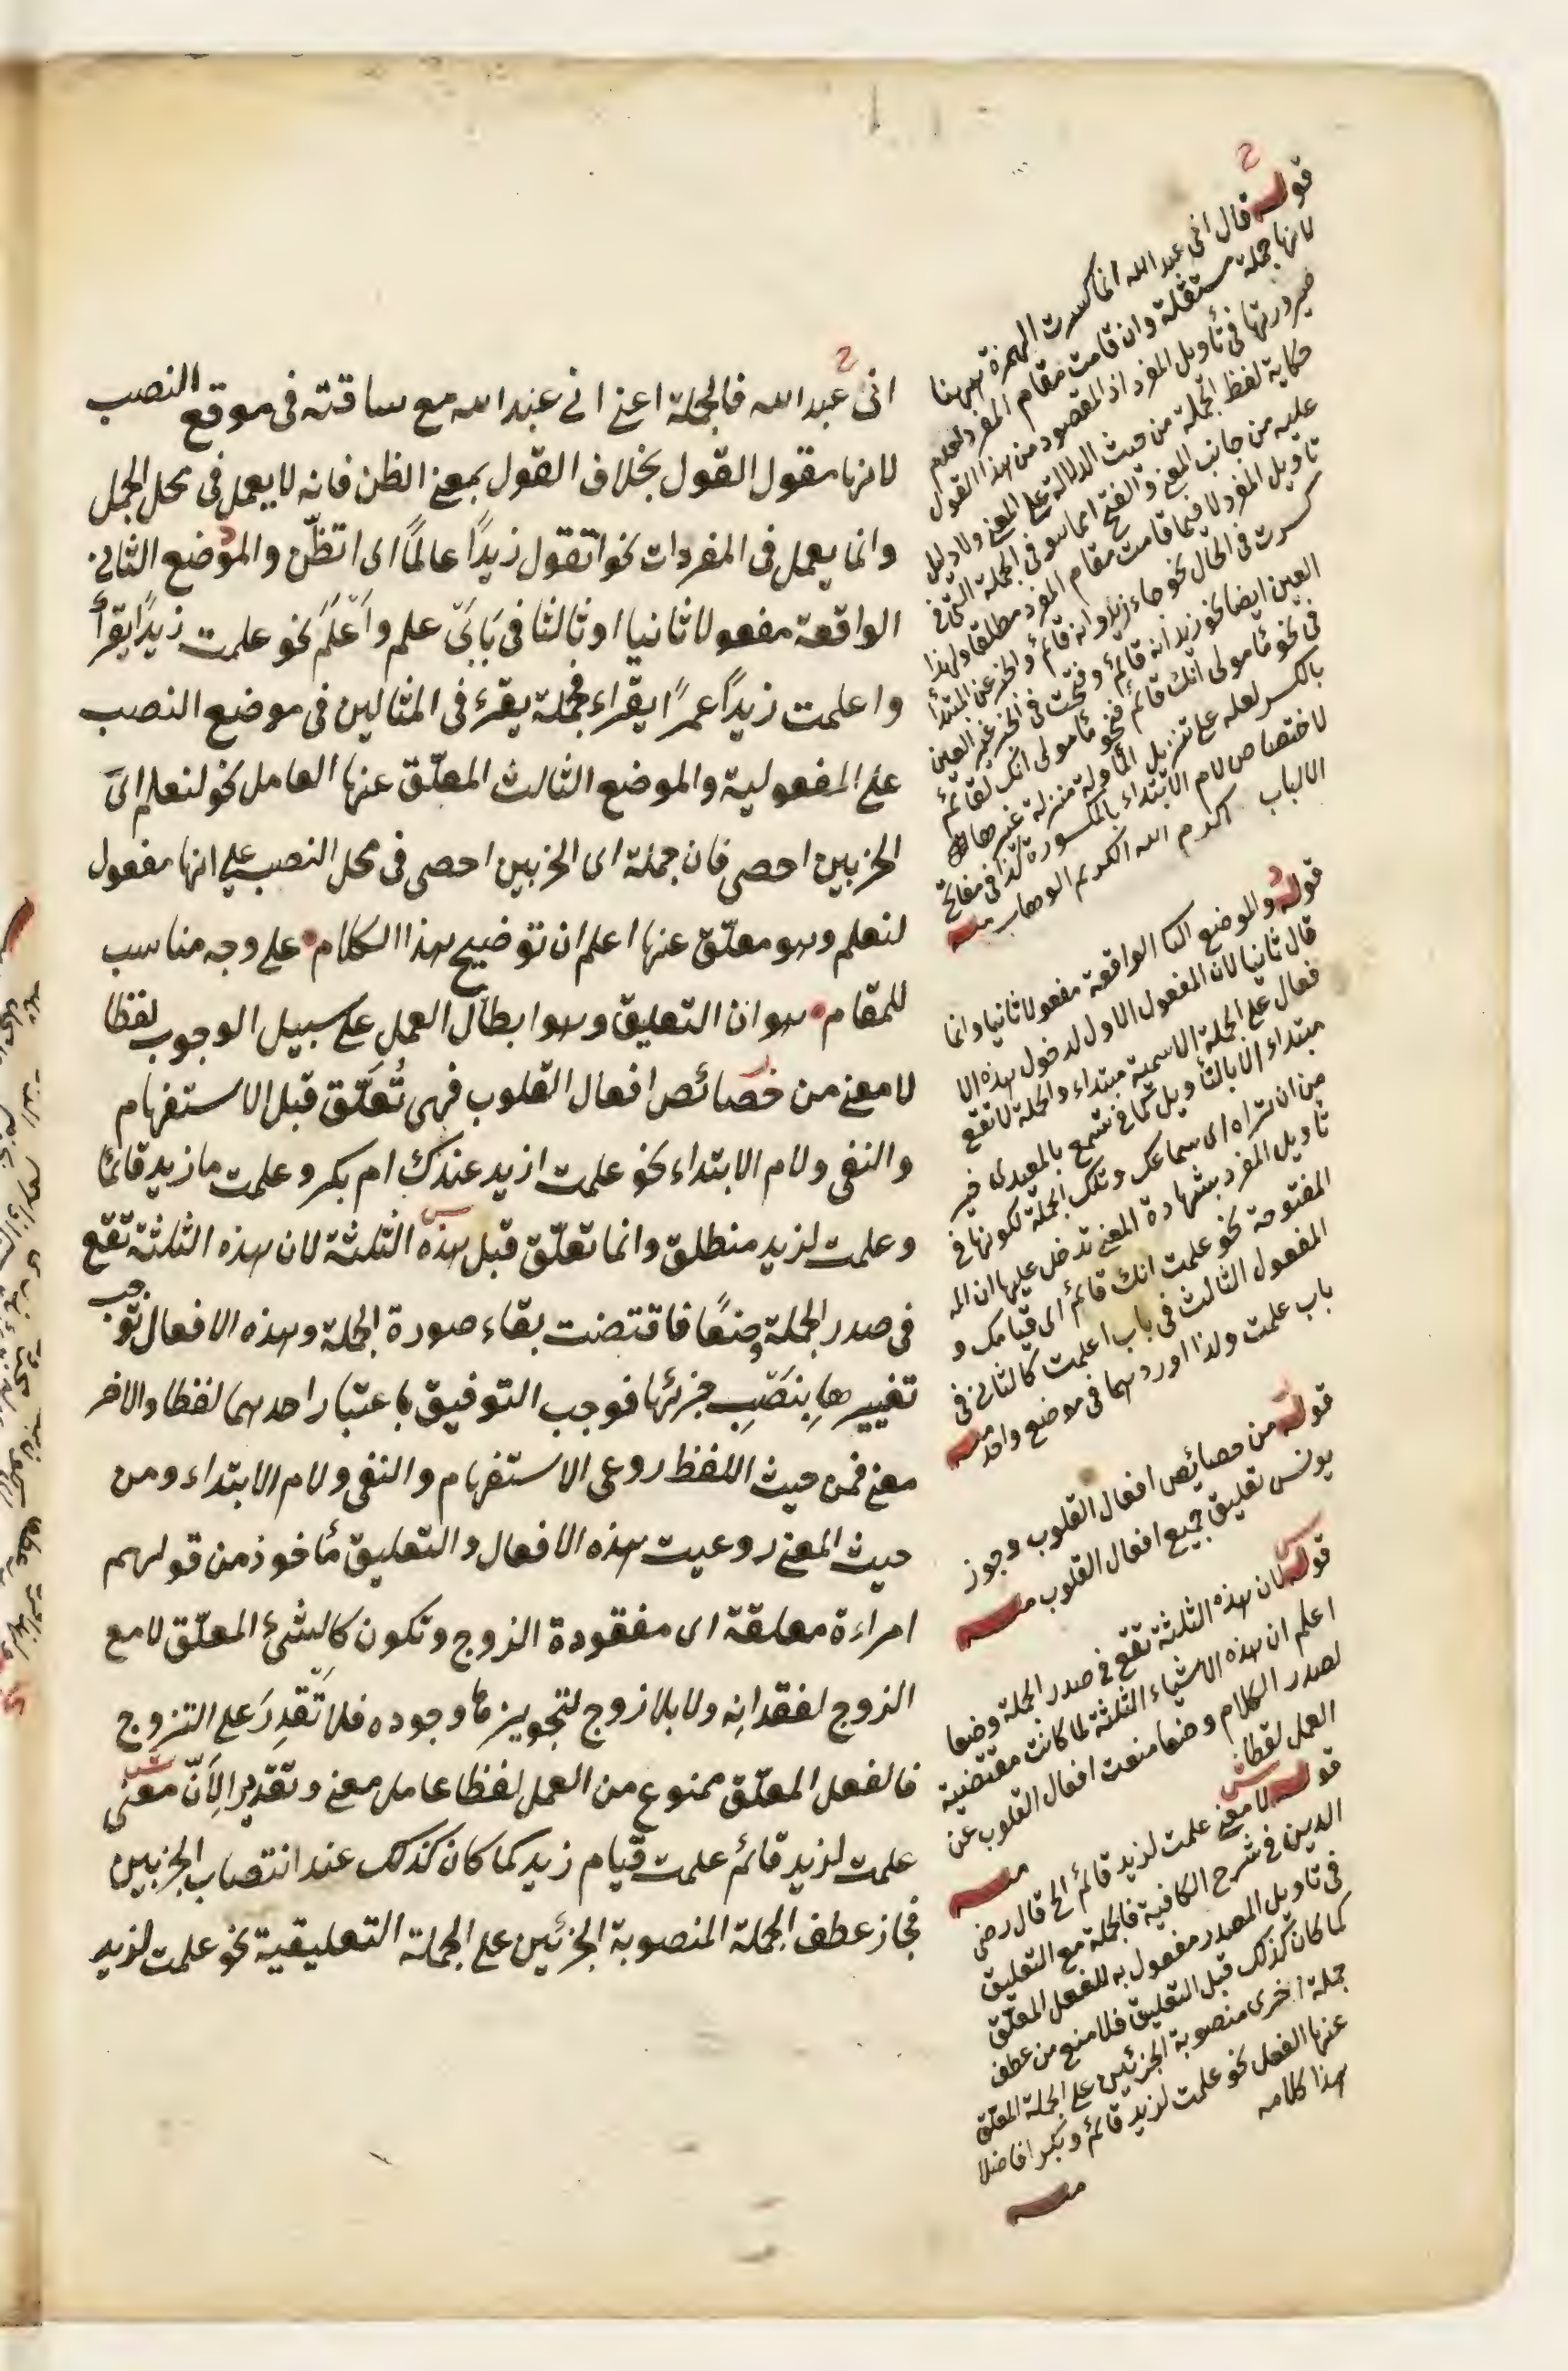 انى عبد الله فالجملة اعنى انى عبد الله مع ساقته فى موقع النصب
لانها مقول القول بخلاف القول بمعنى الظن فانه لا يعمل فى محل الجمل
وانما يعمل فى المفردات نحو اتقول زيدًا عالمًا اى اتظنّ والموضع الثانى
الواقعة مفعولا ثانيا او ثالثا فى بَابَىْ علم واَعْلَمَ نحو علمت زيدًا يقرأ
واعلمت زيدًا عمرًا يقراء فجملة يقرء فى المثالين فى موضع النصب
على المفعولية والموضع الثالث المعلّق عنها العامل نحو لنعلم اىّ
الحزبين احصى فان جملة اى الحزبين احصى فى محل النصب على انها مفعول
لنعلم وهو معلّق عنها اعلم ان توضيح هذا الكلام على وجه مناسب
للمقام هو ان التعليق وهو ابطال العمل على سبيل الوجوب لفظا
لا معنى من خصائص افعال القلوب فهى تُعَلّق قبل الاستفهام
والنفى ولام الابتداء نحو علمت ازيد عندك ام بكر وعلمت ما زيد قائمًا
وعلمت لزيد منطلق وانما تعلّق قبل هذه الثلثة لان هذه الثلثة تقع
فى صدر الجملة وضعًا فاقتضت بقاء صورة الجملة وهذه الافعال توجب
تغييرها بِنَصْبِ جزئيها فوجب التوفيق باعتبار احدهما لفظا والاخر
معنى فمن حيث اللفظ روعى الاستفهام والنفى ولام الابتداء ومن
حيث المعنى روعيت هذه الافعال والتعليق مأخوذ من قولهم
امراءة معلقة اى مفقودة الزوج وتكون كالشئ المعلّق لا مع
الزوج لفقدانِه ولا بلا زوج لتجويزها وجوده فلا تَقْدِرَ على التزوج
فالفعل المعلّق ممنوع من العمل لفظا عامل معنى وتقديرا لِاَنّ معنى
علمت لزيد قائم علمت قيام زيد كما كان كذلك عند انتصاب الجزئين
فجاز عطف الجملة المنصوبة الجزئين على الجملة التعليقية نحو علمت لزيد
قوله قال انى عبد الله انما كسرت الهمزة ههنا
لانها جملة مستقلة وان قامت مقام المفرد لعدم
صيرورتها فى تأويل المفرد اذ المقصود من هذا القول
حكاية لفظ الجملة من حيث الدلالة على المعنى ولا دليل
عليه من جانب المعنى والفتح انما هو فى الجملة التى فى
تأويل المفرد لا فيما قامت مقام المفرد مطلقا ولهذا
كسرت فى الحال نحو جاء زيد وانه قائم والخبر عن المبتدأ
العين ايضا نحو زيد انه قائم وفتحت فى الخبر غير العين
فى نحو مأمولى انك قائم فنحو مأمولى انك لقائم
بالكسر لعله على تنزيل المأولة منزلة غيرها
لاختصاص لام الابتداء بالمكسورة كذا فى مفاتح
الالباب اكرم الله الكريم الوهاب منه
قوله والموضع الثا الواقعة مفعولا ثانيا وانما
قال ثانيا لان المفعول الاول لدخول هذه الا
فعال على الجملة الاسمية مبتداء والجملة لا تقع
مبتداء الا بالتأويل كما فى تسمع بالمعيدى خير
من ان تراه اى سماعك وتلك الجملة لكونها فى
تأويل المفرد بشهادة المعنى تدخل عليها ان الـ
المفتوحة نحو علمت انك قائم اى قيامك و
المفعول الثالث فى باب اعلمت كالثانى فى
باب علمت ولذا اوردهما فى موضع واحد منه
قوله من خصايص افعال القلوب وجوز
يونس تعليق جميع افعال القلوب منه
قوله لان هذه الثلثة تقع فى صدر الجملة وضعا
اعلم ان هذه الاشياء الثلثة لما كانت مقتضية
لصدر الكلام وضعا منعت افعال القلوب عن
العمل لفظا منه
قوله لا معنى علمت لزيد قائم الخ قال رضى
الدين فى شرح الكافية فالجملة مع التعليق
فى تأويل المصدر مفعول به للفعل المعلّق
كما كان كذلك قبل التعليق فلا منع من عطف
جملة اخرى منصوبة الجزئين على الجملة المعلق
عنها الفعل نحو علمت لزيد قائم وبكرا فاضلا
هذا كلامه
منه